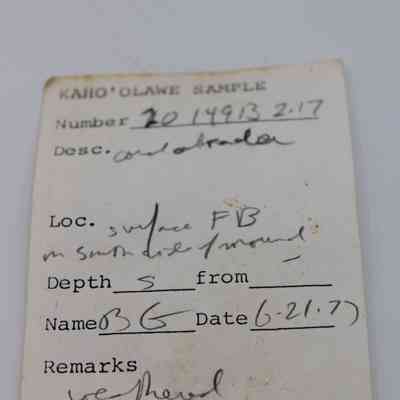 KAHO'OLAWE SAMPLE
Number 20 14913 2.17
Desc. coral abrader
Loc. surface FB
on south side of mound
Depth s from –
Name BG Date 6-21-77
Remarks
weathered